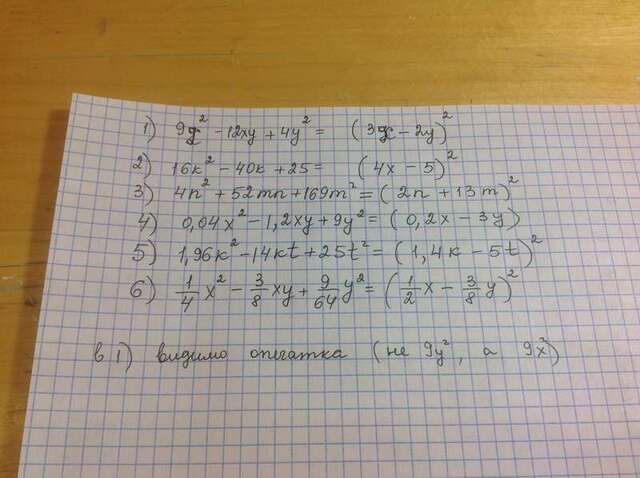 1) 9x² - 12xy + 4y² = (3x - 2y)²
2) 16к² - 40к + 25 = (4x - 5)²
3) 4n² + 52mn + 169m² = (2n + 13m)²
4) 0,04x² - 1,2xy + 9y² = (0,2x - 3y)
5) 1,96к² - 14кt + 25t² = (1,4к - 5t)²
6) 1/4 x² - 3/8 xy + 9/64 y² = (1/2 x - 3/8 y)²
в 1) видимо опечатка (не 9y², а 9x²)